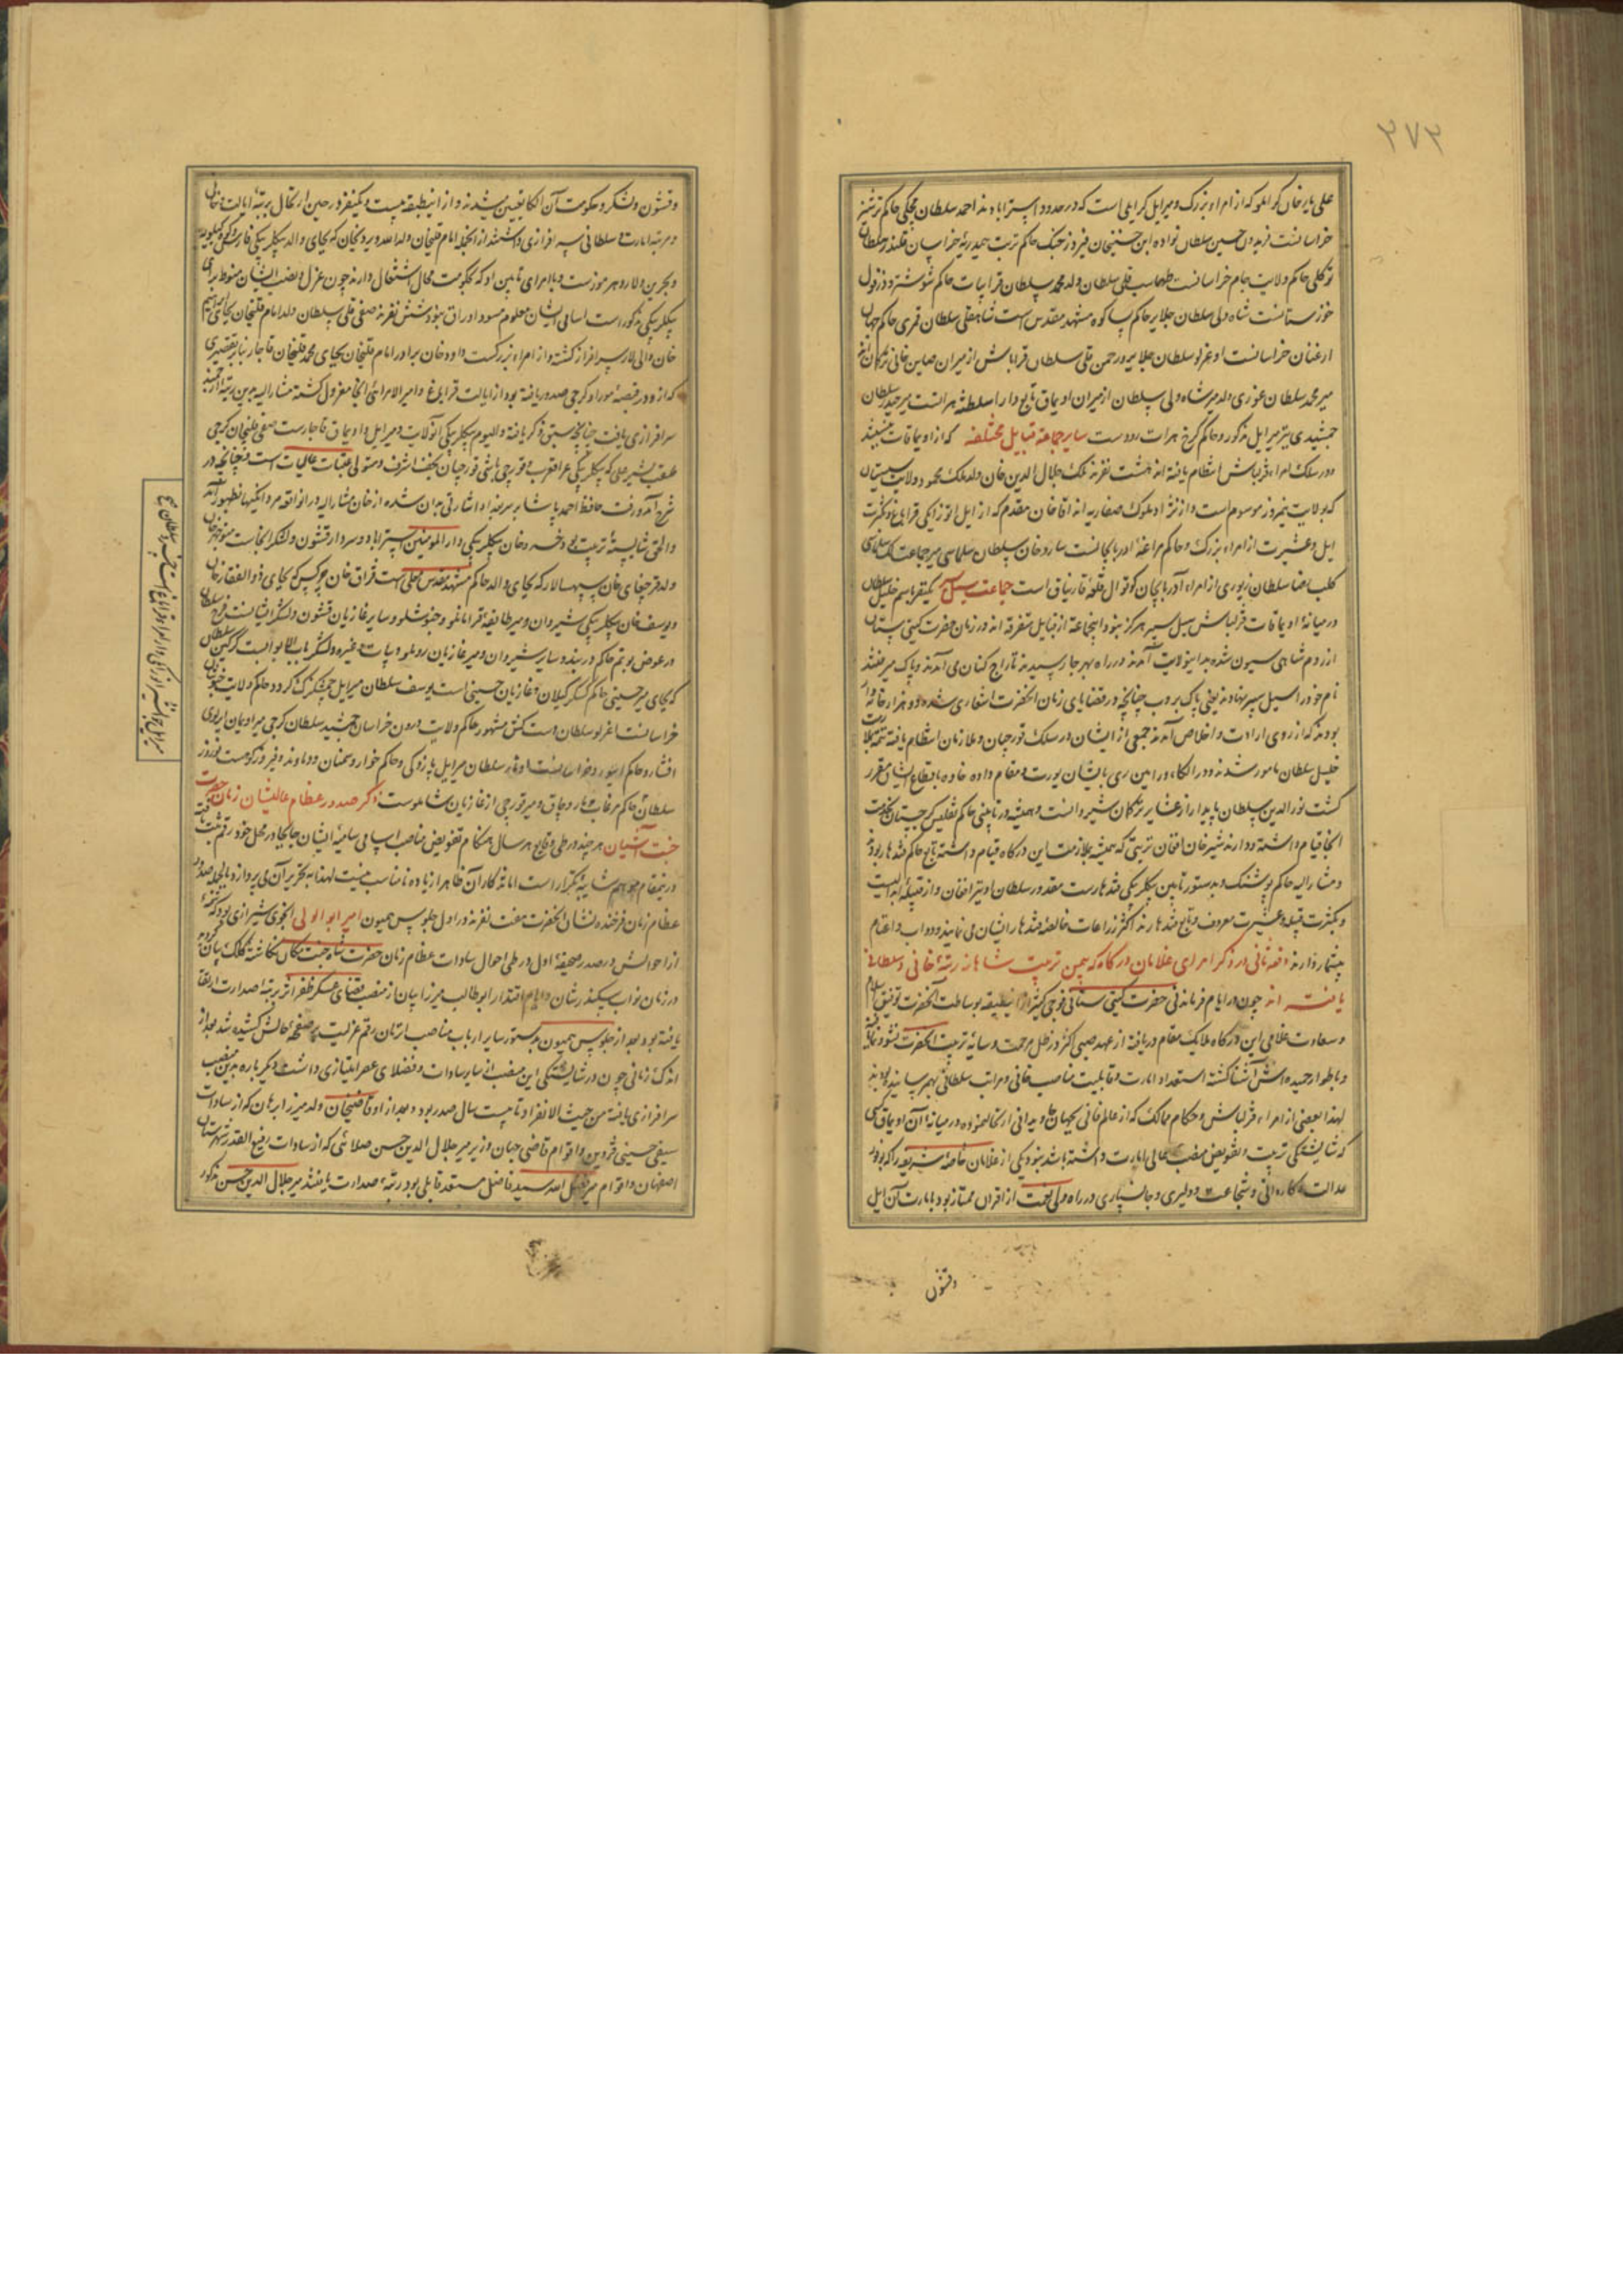 ۲۷۳
علی یار خان گرایلو که از امراء بزرگ و میر ایل گرایلی است که در حدود استراباد ند احمد سلطان حاکم ترشیز
خراسانست فریدون حسین سلطان نواده ابن حسینخان فیروز جنگ حاکم تربت حیدریه خراسان قلندر سلطان
توکلی حاکم ولایت جام خراسانست طهماسب قلی سلطان ولد محمد سلطان قرا بیات حاکم شوشتر و دزفول
خوزستانست شاه ولی سلطان جلایر حاکم پساکوه مشهد مقدس است شاهقلی سلطان قمری حاکم جهان
ارغنان خراسانست اوغرلو سلطان جلایر و رحمن قلی سلطان قراباش از میران صاین خانی
میر محمد سلطان غوری ولد میر شاه ولی سلطان از میران اویماق تابع دارالسلطنه هراتست میر حیدر سلطان
جمشیدی نیز میر ایل مذکور و حاکم کرخ هرات رودست سایر جماعه قبایل مختلفه که از اویماقات نیستند
و در سلک امراء قزلباش انتظام یافته اند هشت نفرند ملک جلال الدین خان ولد ملک محمود والی سیستان
که بولایت نیمروز موسوم است و از نژاد ملوک صفاریه اند آقا خان مقدم که از ایل اتوزایکی قراباغ و بکثرت
ایل و عشیرت از امراء بزرگ و حاکم مراغه اذربایجانست ساروخان سلطان سلماسی میر جماعت
کلب رضا سلطان از امراء آذربایجان کوتوال قلعه قارنیاق است جماعت سیل سپر یکنفر باسم خلیل سلطان
در میانه اویماقات قزلباش سیل سپر هرگز نبود و اینجماعة از قبایل متفرقه اند در زمان حضرت گیتی ستان
از روم شاهی سیون شده بدینولایت آمدند در راه بهر جا رسیدند تاراج کنان می آمدند و پاک میرفتند
نام خود را سیل سپر نهادند یعنی پاک بروب چنانچه در قضایای زمان آنحضرت اشعاری شده دو هزار خانه وار
بودند که از روی ارادت و اخلاص آمدند جمعی از ایشان در سلک قورچیان و ملازمان انتظام یافته تتمه بملازمت
خلیل سلطان مامور شدند و در الکاء ورامین ری بایشان یورت و مقام داده خانوه باقطاع ایشان مقرر
گشت نور الدین سلطان پایدار از عشایر ترکمان شیروانست و همیشه در تابینی حاکم تفلیس گرجستان بخدمت
آنجا قیام داشته و دارند شیرخان افغان ترینی که همیشه بملازمت این درگاه قیام داشته تابع حاکم قندهار بود
و مشارالیه حاکم پوشنگ و بدستور تابین بیگلربیگی قندهارست مقدور سلطان او نیز افغان و از قبیله ابدالیست
و بکثرت قبیله و عشیرت معروف و تابع قندهارند اکثر زراعات خالصه قندهار ایشان می نمایند و دواب و اغنام
بیشمار دارند دفعه ثانی در ذکر امرای غلامان درگاه که بیمن تربیت شاهانه رتبه خانی و سلطانی
یافته اند چون در ایام فرماندهی حضرت گیتی ستانی فوجی کثیر از اینطبقه بوساطت آنحضرت توفیق اسلام
و سعادت غلامی این درگاه ملایک مقام دریافته از عهد صبی اکثر در ظل مرحمت و سایه تربیت آنحضرت نشو و نما یافته
و باطوار حمیده اش آشنا گشته استعداد امارت و قابلیت مناصب خانی و مراتب سلطانی بهم رسانیده بودند
لهذا بعضی از امراء قزلباش و حکام ممالک که از عالم فانی بجهان جاودانی ارتحال نموده در میانه آن اویماق کسی
که شایستگی تربیت و تفویض منصب عالی امارت داشته باشد نبود یکی از غلامان خاصه شریفه را که بوفور
عدالت و کاردانی و شجاعت و دلیری و جانسپاری در راه ولی نعمت از اقران ممتاز بود بامارت آن ایل
وقشون
وقشون و لشکر و حکومت آن الکا تعیین میشدند و از اینطبقه بیست و یکنفر در حین ارتحال برتبه ایالت خانی
و مرتبه امارت و سلطانی سرافرازی داشتند از انجمله امام قلیخان ولد الله ویردیخان که بجای والد بیگلربیگی فارس و کوهکیلویه
و بحرین و لار و هرموزست و با امرای تابین او که بحکومت محال اشتغال دارند چون عزل و نصب ایشان منوط برای
بیگلربیگی مذکور است اسامی ایشان معلوم مسود اوراق نبود شش نفرند صفی قلی سلطان ولد امام قلیخان بجای ابراهیم
خان والی لار سرافراز گشته و از امراء بزرگست داود خان برادر امام قلیخان بجای محمد قلیخان قاجار بنابر تقصیری
که ازو در قضیه موراو گرجی صدور یافته بود از ایالت قراباغ و امیر الامرائی آنجا معزول گشته مشارالیه بدین رتبه ارجمند
سرافرازی یافت چنانچه سبق ذکر یافته و الیوم بیگلربیگی آنولایت و میر ایل و اویماق قاجارست صفی قلیخان گرجی
ملقب بشیر علی که بیگلربیگی عراق عرب و قورچی باشی قورچیان نجف اشرف و متولی عتبات عالیات است چنانچه در
شرح آمد و رفت حافظ احمد پاشا بر سر بغداد اشارتی بدان شده از خان مشارالیه در انواقعه مردانگیها بظهور آمد
والحق شایسته تربیت بود خسرو خان بیگلربیگی دار المومنین استراباد و سردار قشون و لشکر آنجاست منوچهر خان
ولد قرچغای خان سپهسالار که بجای والد حاکم مشهد مقدس معلی است قزاق خان چرکس که بجای ذوالفقار خان
و یوسف خان بیگلربیگی شیروان و میر طایفه قرامانلو و خنوشلو و سایر غازیان قشون و لشکر ایشانست فرخ سلطان
در عوض بوتم حاکم دربند و سایر شیروان و میر غازیان روملو و بیات و غیره و لشکر باب الابوابست گرگین سلطان
که بجای میر حسینی حاکم گسکر گیلان و غازیان حسینی است یوسف سلطان میر ایل چمشگزک گرد و حاکم ولایت خبوشان
خراسانست اغرلو سلطان دست کش مشهور حاکم ولایت درون خراسان جمشید سلطان گرجی میر اویمان ایرلوی
افشار و حاکم ابیورد خراسانست اوتار سلطان میر ایل پازوکی و حاکم خوار و سمنان و دماوند و فیروزکوهست نوروز
سلطان حاکم مرغاب و ماروچاق و میر قورچی از غازیان شاملوست ذکر صدور عظام عالیشان زمان حضرت
جنت آشیان هر چند در طی وقایع هر سال هنگام تفویض مناصب اسامی سامیه ایشان جابجا در محل خود رقم ثبت یافته
درینمقام موهم شایبه تکرار است اما تذکار آن خاطر از یاده نامناسب نیست لهذا به تحریر آن می پردازد بالجمله صدور
عظام زمان فرخنده نشان آنحضرت هفت نفرند در اول جلوس همیون امیر ابو الولی انجوی شیرازی بود که شمه
از احوالش در صدر صحیفه اول در طی احوال سادات عظام زمان حضرت شاه جنت مکان نگاشته کلک بیان گردیده
در زمان نواب سکندر شان و ایام اقتدار ابوطالب میرزا یان از منصب قضای عسکر ظفر اثر برتبه صدارت ارتقا
یافته بود بعد از جلوس همیون بدستور سایر ارباب مناصب انزمان رقم عزلیت بر صفحه حالش کشیده شد بعد از
اندک زمانی چون در شایستگی این منصب از سایر سادات و فضلای عصر امتیازی داشت دیگرباره بدین منصب
سرافرازی یافته من حیث الانفراد تا بیست سال صدر بود و بعد از او قاضیخان ولد میرزا برهان که از سادات
سیفی حسینی قزوین و اقوام قاضی جهان وزیر میر جلال الدین حسن صلائی که از سادات رفیع القدر شهرستان
اصفهان و اقوام میر فضل الله سید فاضل مستعد قابلی بود رتبه صدارت یافتند میر جلال الدین حسن مذکور